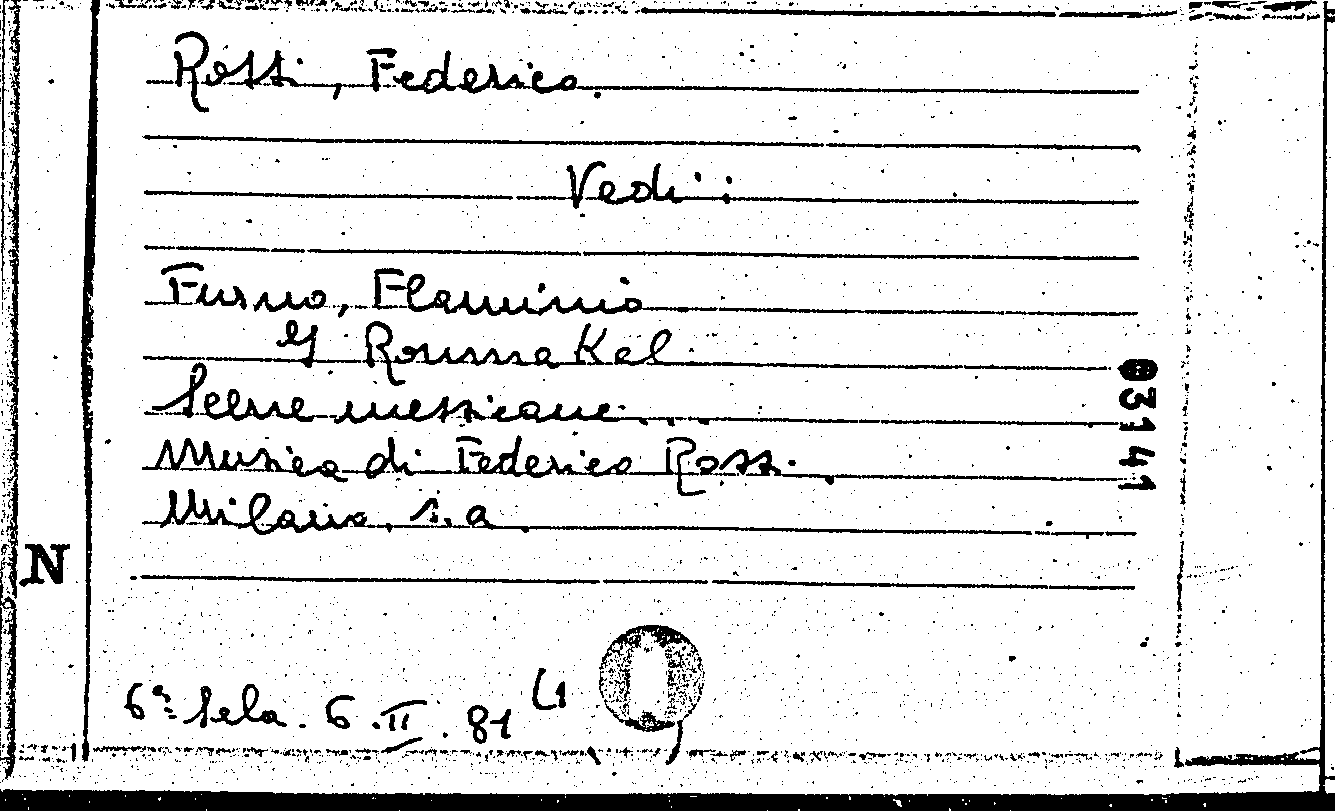 Rossi, Federico.
Vedi:
Furno, Flaminio
Rouma Kel.
Scene messicane...
Musica di Federico Rossi.
Milano, s.a.
03141
N
6ª Sala. 6.II.81